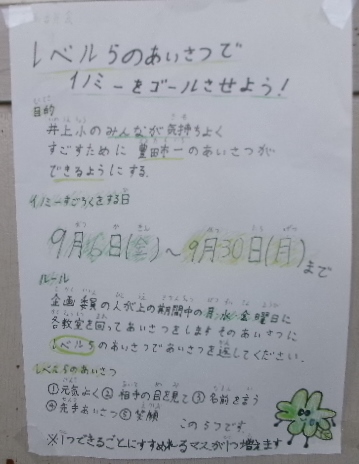 レベル5のあいさつで
イノミーをゴールさせよう!
目的
井上小のみんなが気持ちよく
すごすために豊田市一のあいさつが
できるようにする.
イノミーすごろくをする日
9月6日(金)~9月30日(月)まで
ルール
企画委員の人が上の期間中の月,水,金,曜日に
各教室を回ってあいさつをします そのあいさつに
レベル5のあいさつであいさつを返してください.
レベル5のあいさつ
①元気よく②相手の目を見て③名前を言う
④先手あいさつ⑤笑顔
この5つです
※1つできるごとにすすめれるマスが1つ増えます